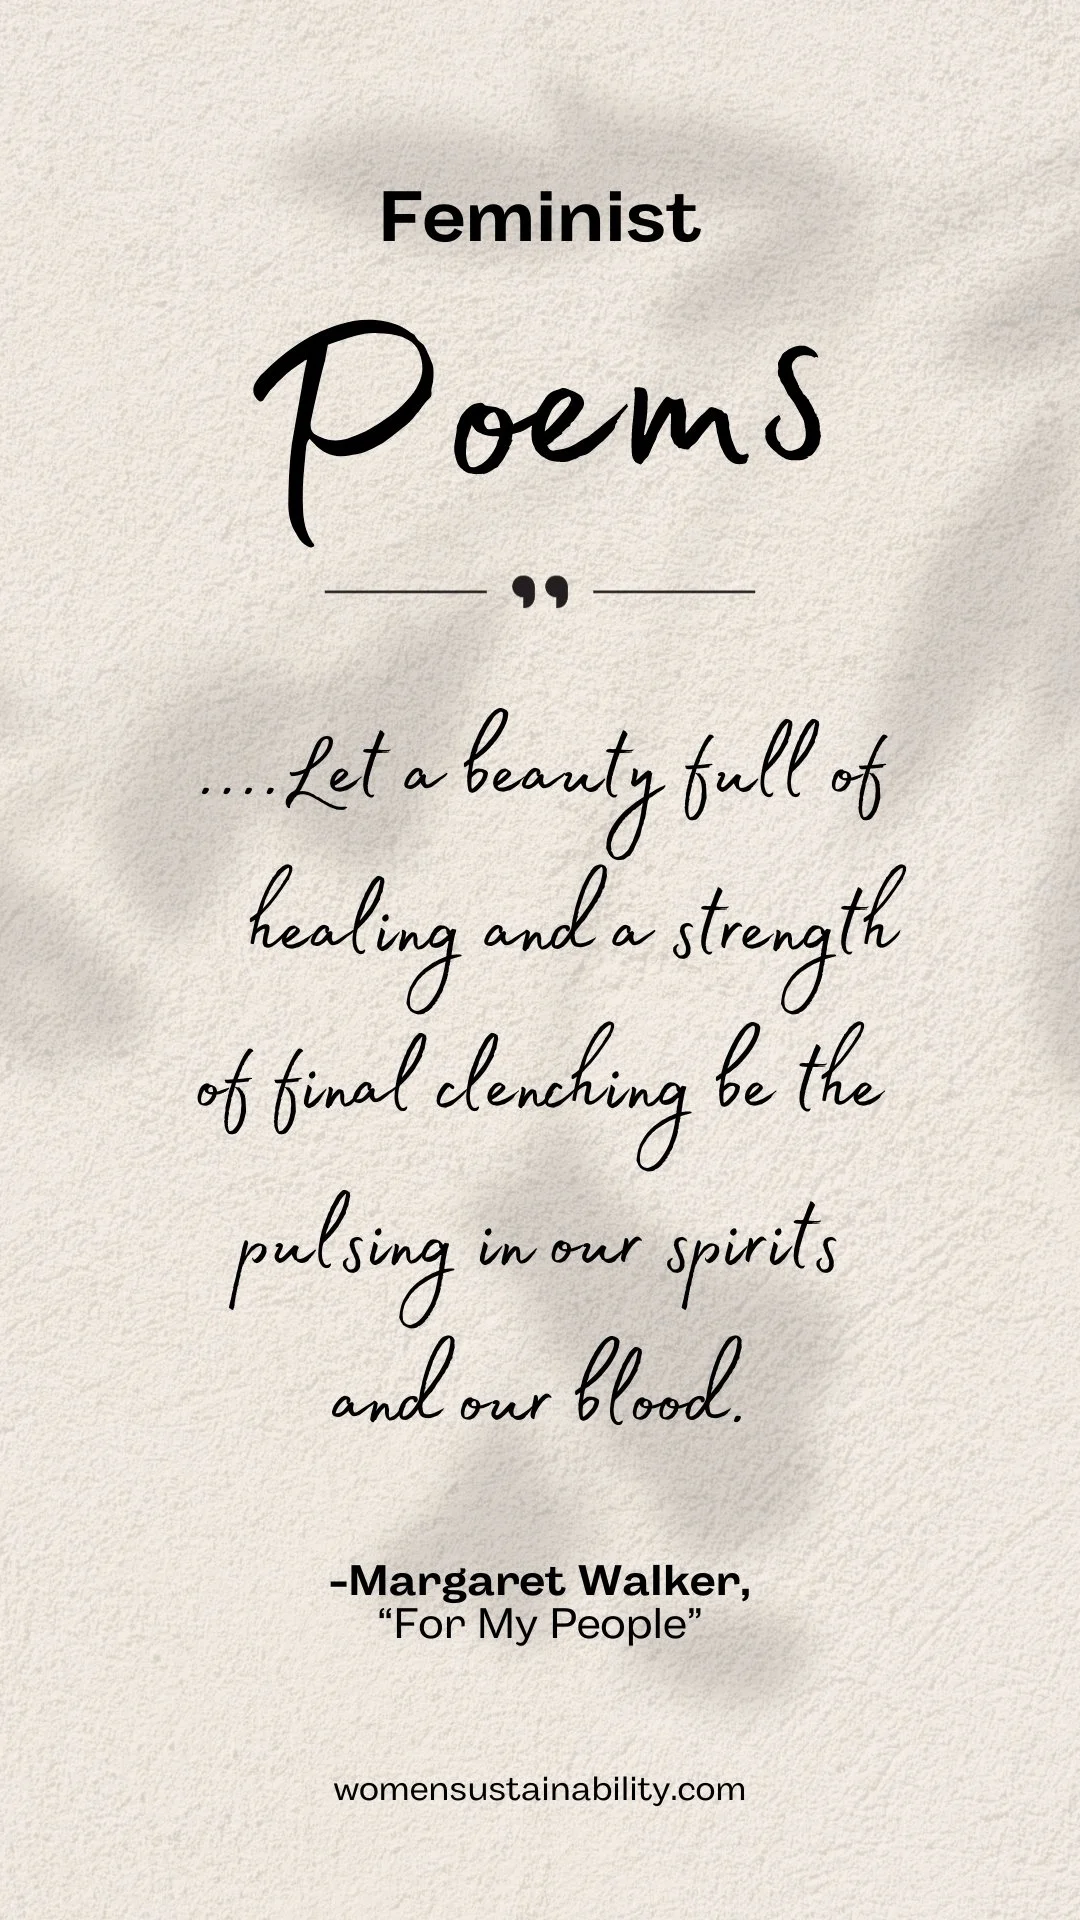 Feminist
Poems
❜❜
....Let a beauty full of
healing and a strength
of final clenching be the
pulsing in our spirits
and our blood.
-Margaret Walker,
“For My People”
womensustainability.com